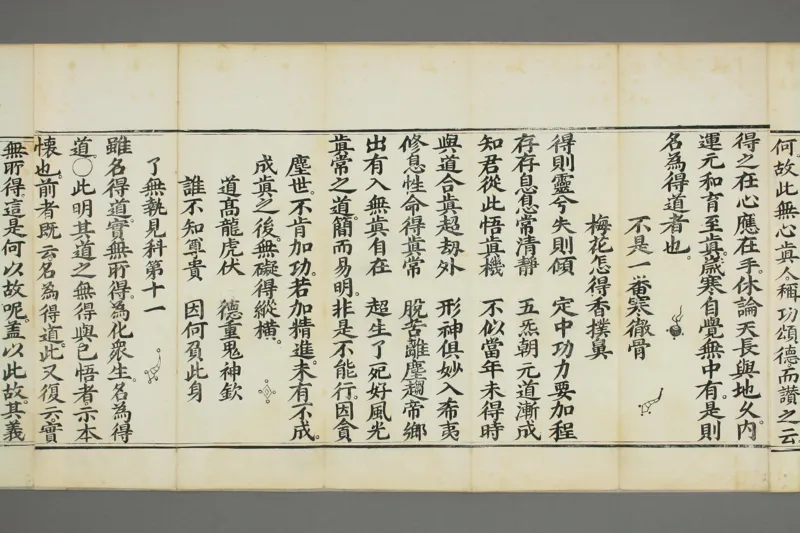 何故此無心眞人稱功頌德而讚之云
得之在心應在手休論天長與地久內
運元和育至眞歲寒自覺無中有是則
名為得道者也
不是一畨寒徹骨
梅花怎得香撲𪖙
得則靈兮失則傾 定中功力要加程
存存息息常清靜 五炁朝元道漸成
知君從此悟眞機 不似當年未得時
與道合眞超劫外 形神俱妙入希夷
修息性命得眞常 脫苦離塵趨帝鄉
出有入無眞自在 超生了死好風光
眞常之道簡而易明非是不能行因貪
塵世不肯加功若加精進未有不成
成眞之後無礙得縱橫
道高龍虎伏 德重鬼神欽
誰不知尊貴 因何負此身
了無執見科第十一
雖名得道實無所得為化衆生名為得
道〇此明其道之無得與已悟者示本
懷也前者既云名為得道此又復云實
無所得這是何以故呢盖以此故其義